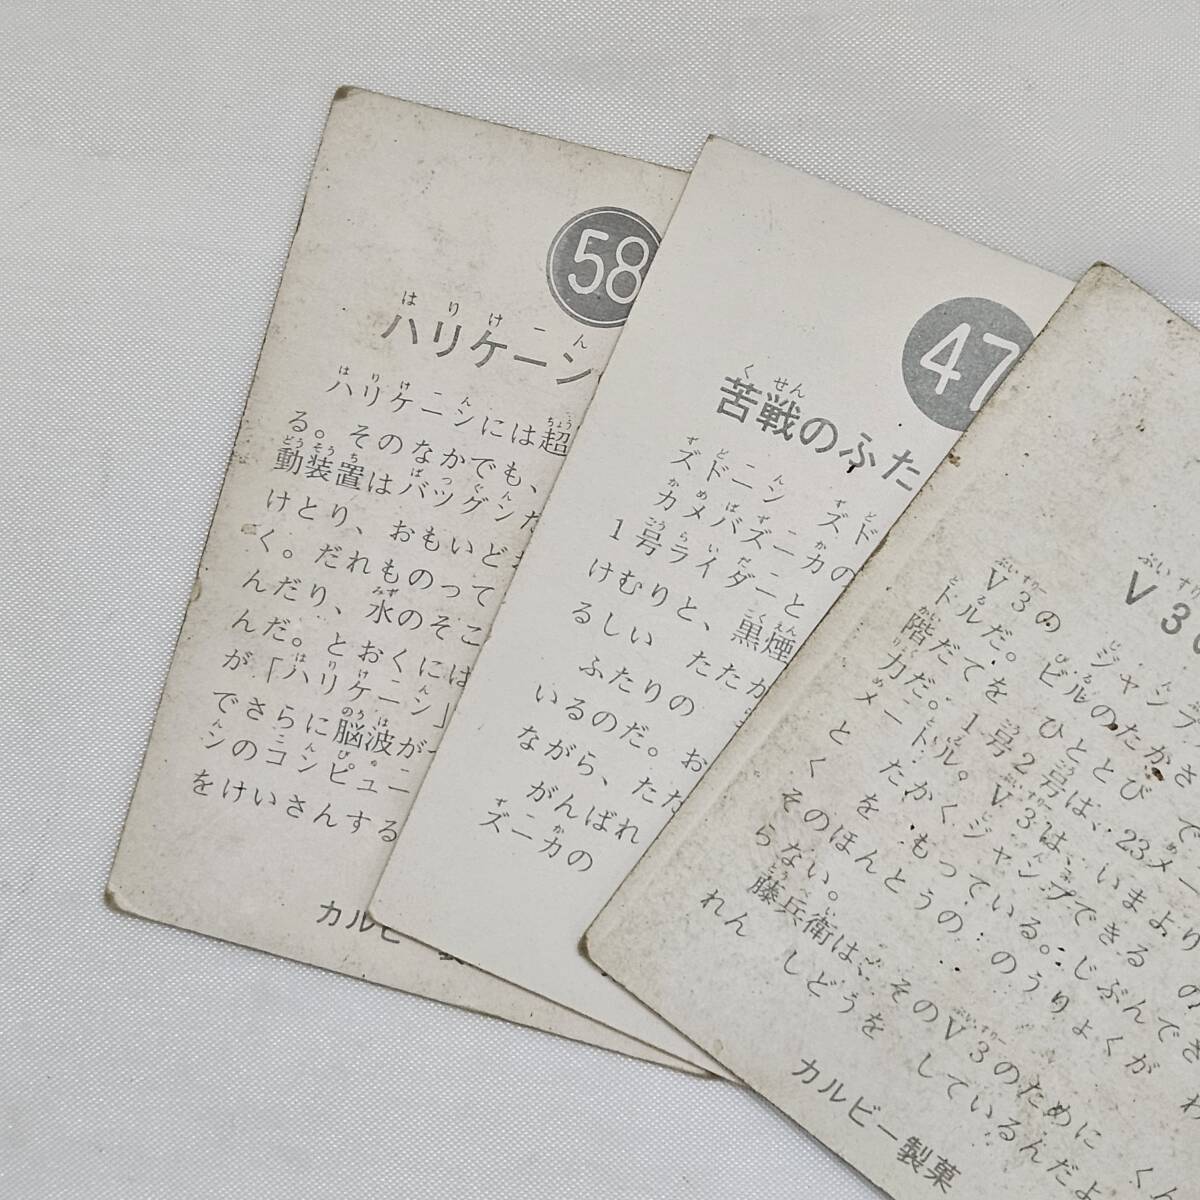 58
ハリケーン
ハリケーンには超
る。そのなかでも、
動装置はバツグンだ
けとり、おもいどお
く。だれものって
んだり、水のそこ
んだ。とおくには
が「ハリケーン」
でさらに脳波が
ンのコンピュー
をけいさんする
カルビー
47
苦戦のふた
ズドーン ズド
カメバズーカの
1号ライダーと
けむりと、黒煙
るしい たたか
ふたりの
いるのだ。お
ながら、たた
がんばれ
ズーカの
V3の
V3の ジャンプ
ドルだ。ビルのたかさで
階だてを ひととび
力だ。1号2号は、23メー
メートル。V3は、いまより
と たかくジャンプできる の
とくを もっている。じぶんでさ
そのほんとうの のうりょくが わ
らない。
藤兵衛は、そのV3のために くん
れん しどうを しているんだよ
カルビー製菓